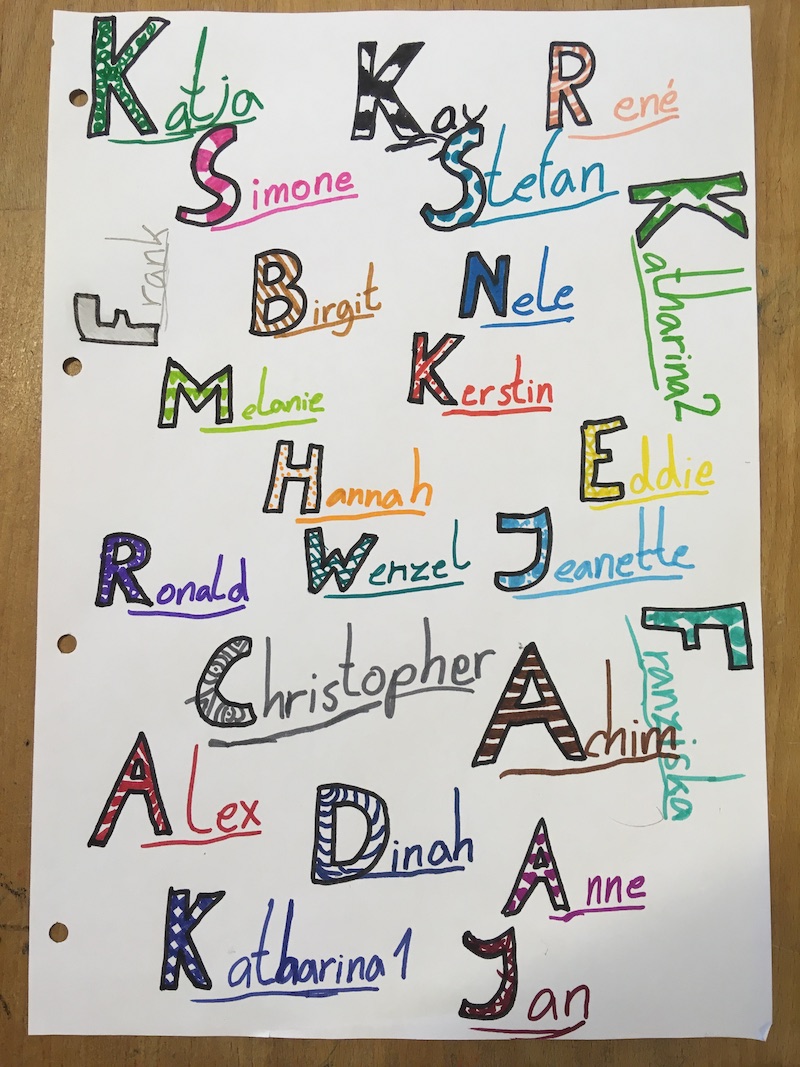 Katja
Kay
René
Simone
Stefan
Katharina2
Frank
Birgit
Nele
Melanie
Kerstin
Hannah
Eddie
Ronald
Wenzel
Jeanette
Franziska
Christopher
Achim
Alex
Dinah
Anne
Katharina1
Jan